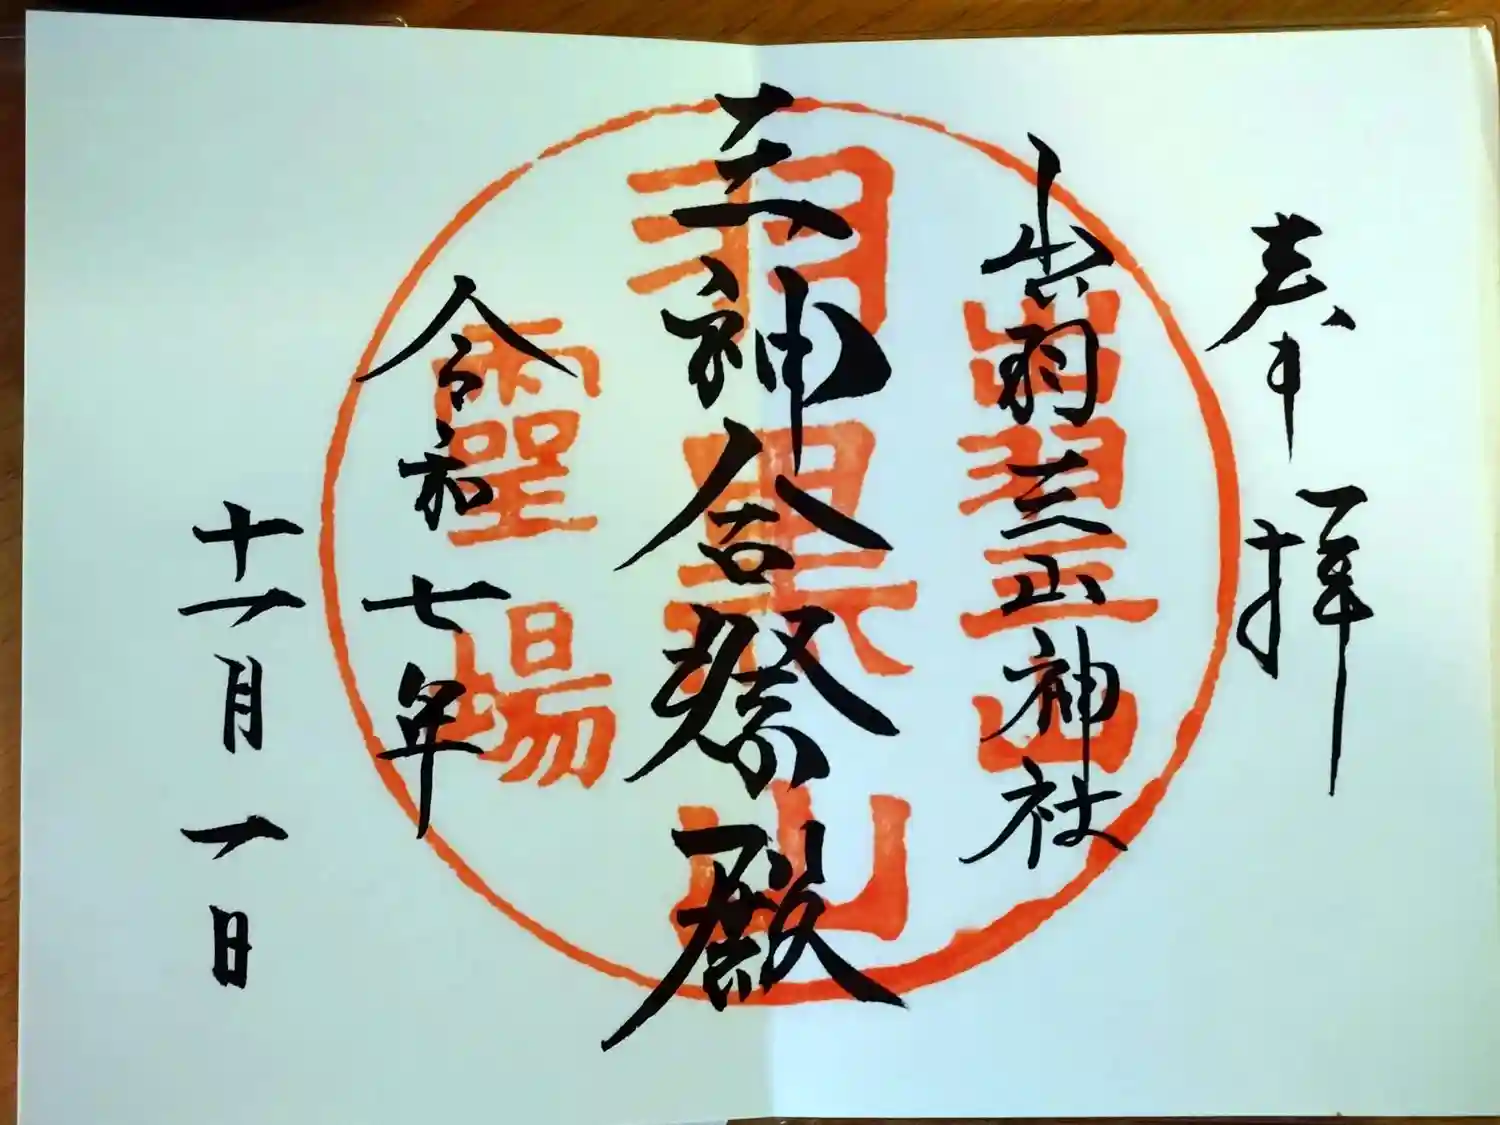 奉拝
出羽三山神社
三神合祭殿
令和七年
十一月一日
出羽三山
羽黒山
靈場